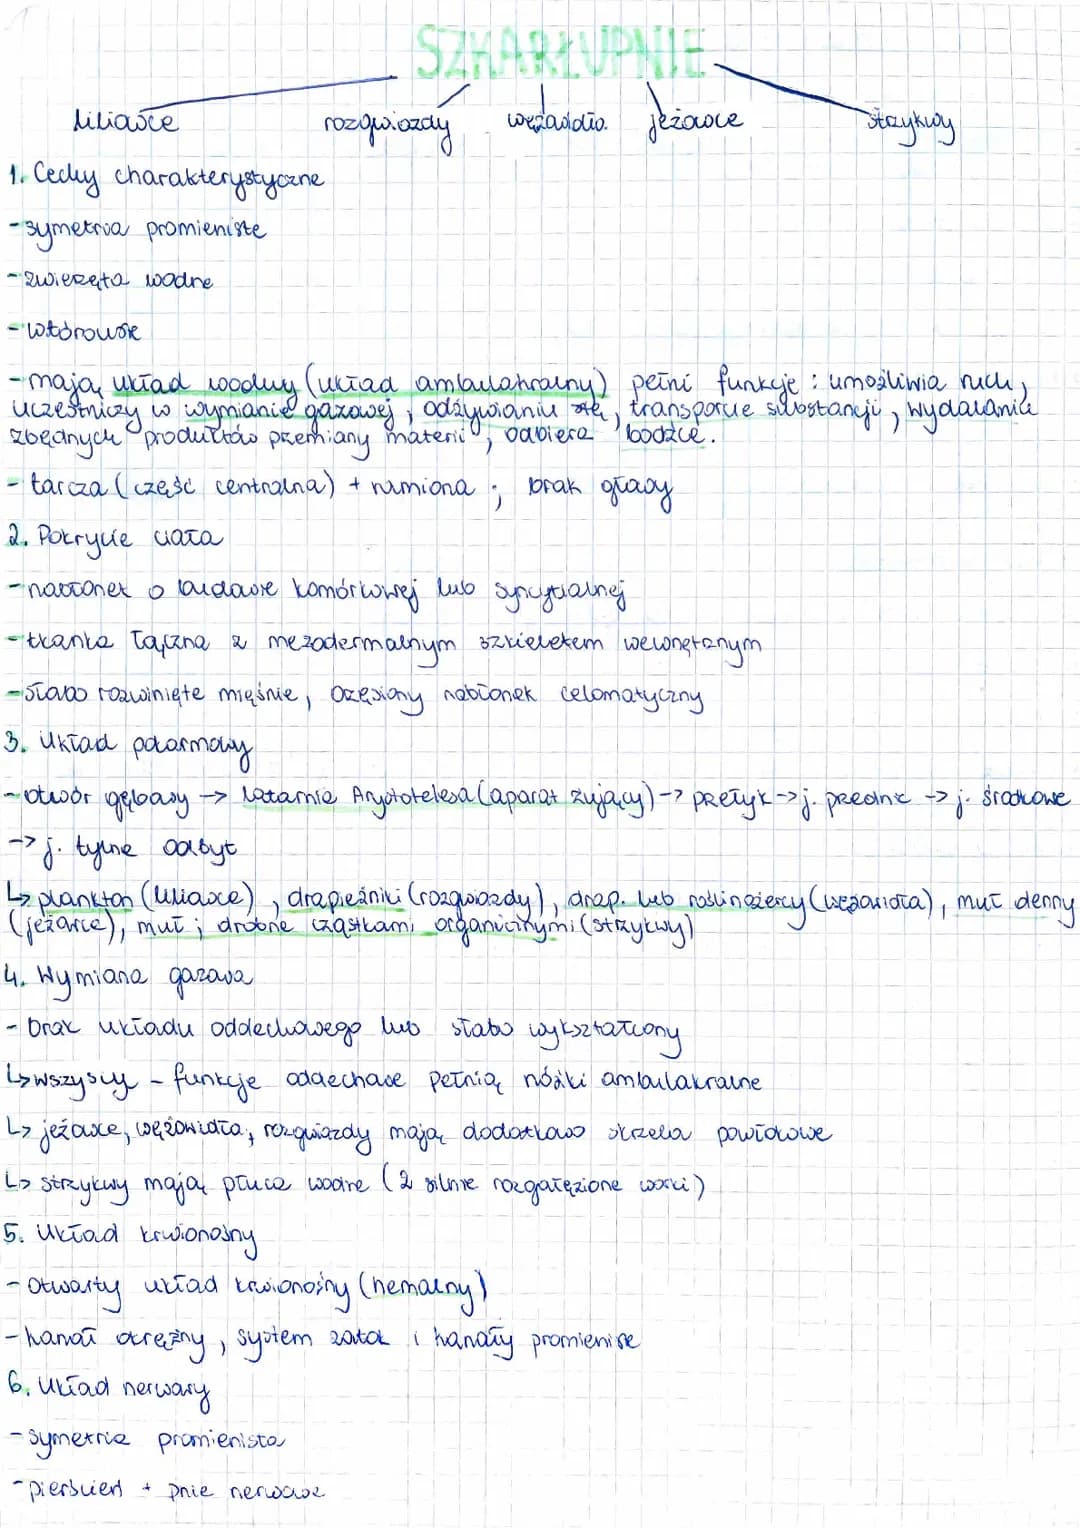 SZKARŁUPNIE
liliowce rozgwiazdy wężowidła jeżowce strzykwy
1. Cechy charakterystyczne
- symetria promieniste
- zwierzęta wodne
- wtórouste
- mają układ wodny (układ ambulakralny) pełni funkcję : umożliwia ruch,
uczestniczy w wymianie gazowej, odżywianiu się, transporcie substancji, wydalania
zbędnych produktów przemiany materii, odbiera bodźce.
- tarcza (część centralna) + ramiona ; brak głowy
2. Pokrycie ciała
- nabłonek o budowie komórkowej lub syncytialnej
- tkanka łączna z mezodermalnym szkieletem wewnętrznym
- słabo rozwinięte mięśnie, orzęsiony nabłonek celomatyczny
3. Układ pokarmowy
- otwór gębowy -> latarnia Arystotelesa (aparat żujący) -> przełyk -> j. przednie -> j. środkowe
-> j. tylne odbyt
↳ plankton (liliowce), drapieżniki (rozgwiazdy), drap. lub roślinożercy (wężowidła), muł denny
(jeżowce), muł ; drobne cząstkami organicznymi (strzykwy)
4. Wymiana gazowa
- brak układu oddechowego lub słabo wykształcony
↳ wszyscy - funkcje oddechowe pełnią nóżki ambulakralne
↳ jeżowce, wężowidła, rozgwiazdy mają dodatkowo skrzela powłokowe
↳ strzykwy mają płuca wodne (2 silnie rozgałęzione worki)
5. Układ krwionośny
- Otwarty układ krwionośny (hemalny)
- kanał okrężny, system zatok i kanały promieniste
6. Układ nerwowy
- symetria promienista
- pierścień + pnie nerwowe